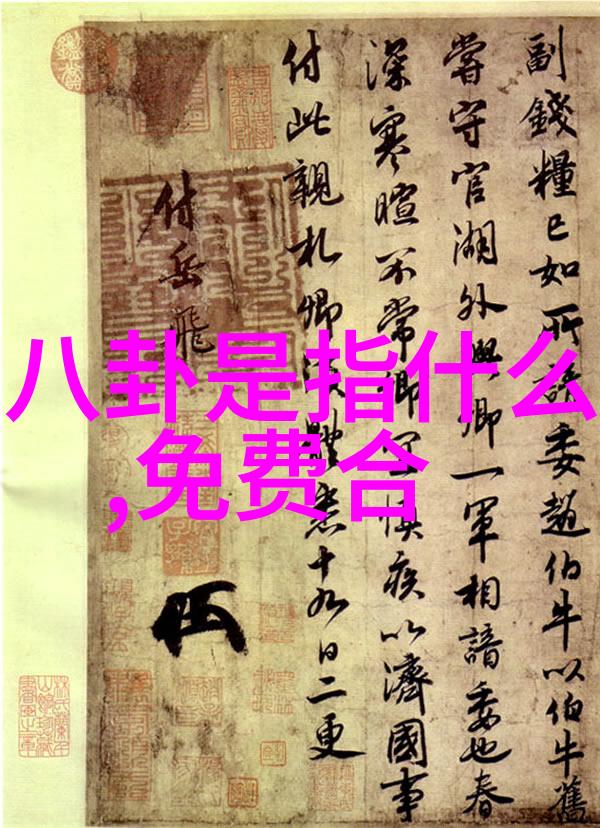 八卦是指什么
,免费合
副錢糧已如所請委趙伯牛以伯牛舊
嘗守官湖外與卿一軍相諳委也春
深寒暄不常卿宜慎疾以濟國事
付此親札卿須體悉十九日二更
付岳飛